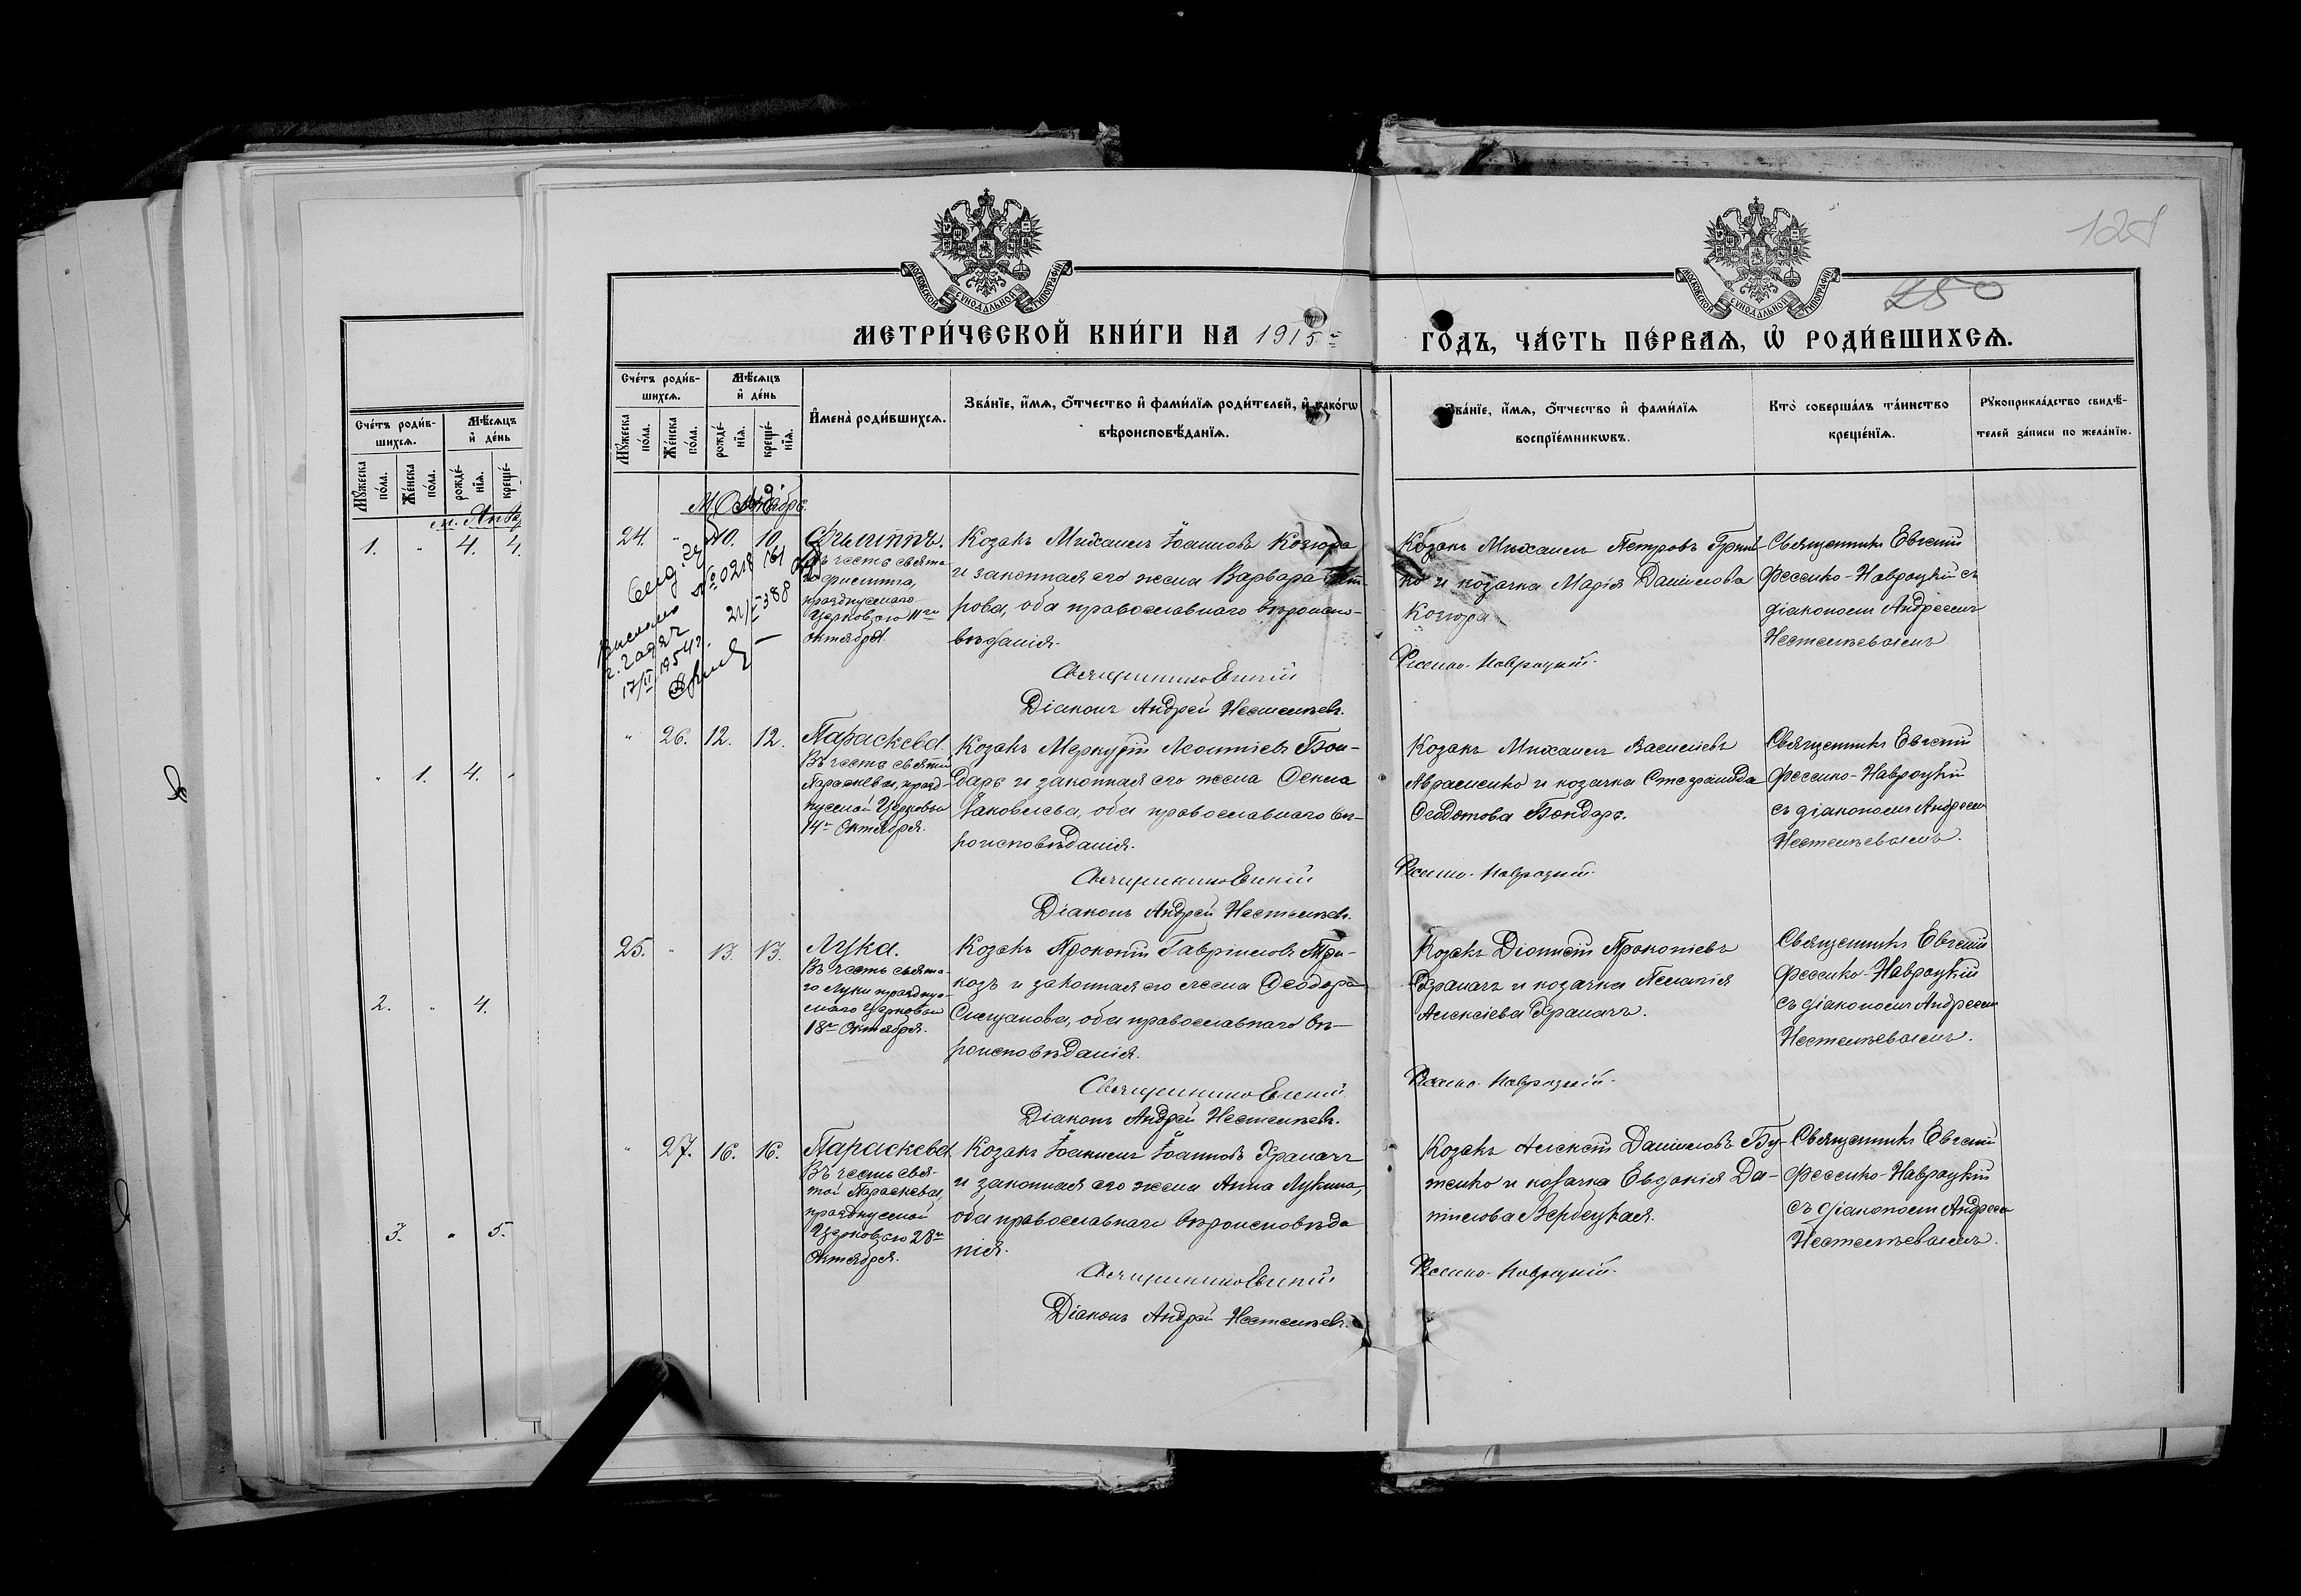 128
250
МОСКОВСКОЙ СѴНОДАЛЬНОЙ ТИПОГРАФІИ
МОСКОВСКОЙ СѴНОДАЛЬНОЙ ТИПОГРАФІИ
МЕТРИ́ЧЕСКОЙ КНИ́ГИ НА 1915 ГО́ДЪ, ЧА́СТЬ ПЕ́РВАѦ, Ѡ҆ РОДИ́ВШИХСѦ.
Сче́тъ роди́в-
шихсѧ.
Мѣ́сѧцъ
и҆ де́нь
Мꙋ́жеска
по́ла.
Же́нска
по́ла.
рожде́-
нїѧ.
креще́-
Сче́тъ роди́в-
шихсѧ.
Мѣ́сѧцъ
и҆ де́нь
Мꙋ́жеска
по́ла.
Же́нска
по́ла.
рожде́-
нїѧ.
креще́-
нїѧ.
И҆мена̀ роди́вшихсѧ.
Зва́нїе, и҆́мѧ, ѻ҆́тчество и҆ фами́лїѧ роди́телей, и҆ како́гѡ
вѣроисповѣ́данїѧ.
Зва́нїе, и҆́мѧ, ѻ҆́тчество и҆ фами́лїѧ
воспрїе́мникѡвъ.
Кто̀ соверша́лъ та́инство
креще́нїѧ.
Рꙋкоприкла́дство свидѣ́-
телей за́писи по жела́нїю.
м. Янва
1. " 4. 4.
" 1. 4.
2. " 4.
3. " 5.
М. Октябрь.
24. " 10. 10. Филиппъ.
Въ честь свята-
го Филиппа,
празднуемаго
Церковью 11го
октября.
Козакъ Михаилъ Іоанновъ Козюра
и законная его жена Варвара Пет-
рова, оба православнаго вѣроиспо-
вѣданія.
Священникъ Евгеній
Діаконъ Андрей Нестелѣевъ.
Козакъ Михаилъ Петровъ Гринь-
ко и козачка Марія Даніилова
Козюра
Фесенко-Навроцкій.
Священникъ Евгеній
Фесенко-Навроцкій съ
діакономъ Андреемъ
Нестелѣевымъ
г. Гадяч
" 26. 12. 12. Параскева.
Въ честь святой
Параскевы, празд-
нуемой Церковью
14го Октября.
Козакъ Меркурій Леонтіевъ Бон-
дарь и законная его жена Ѳекла
Іаковлева, оба православнаго вѣ-
роисповѣданія.
Священникъ Евгеній
Діаконъ Андрей Нестелѣевъ.
Козакъ Михаилъ Василіевъ
Авраменко и козачка Стефанида
Ѳеодотова Бондарь.
Фесенко-Навроцкій.
Священникъ Евгеній
Фесенко-Навроцкій
съ діакономъ Андреемъ
Нестелѣевымъ.
25. " 13. 13. Лука.
Въ честь свята-
го Луки праздну-
емаго Церковью
18го Октября.
Козакъ Прокопій Гавріиловъ Тро-
козъ и законная его жена Ѳеодора
Стефанова, оба православнаго вѣ-
роисповѣданія.
Священникъ Евгеній
Діаконъ Андрей Нестелѣевъ.
Козакъ Діонисій Прокопіевъ
Храпачъ и козачка Пелагія
Алексіева Храпачъ.
Фесенко-Навроцкій.
Священникъ Евгеній
Фесенко-Навроцкій
съ діакономъ Андреемъ
Нестелѣевымъ.
" 27. 16. 16. Параскева
Въ честь свя-
той Параскевы,
празднуемой
Церковью 28го
Октября.
Козакъ Іоаннъ Іоанновъ Храпачъ
и законная его жена Анна Лукина,
оба православнаго вѣроисповѣда
нія.
Священникъ Евгеній
Діаконъ Андрей Нестелѣевъ.
Козакъ Алексій Даніиловъ Бу-
тенко и козачка Евдокія Да-
ніилова Вербецкая.
Фесенко-Навроцкій.
Священникъ Евгеній
Фесенко-Навроцкій
съ діакономъ Андреемъ
Нестелѣевымъ.